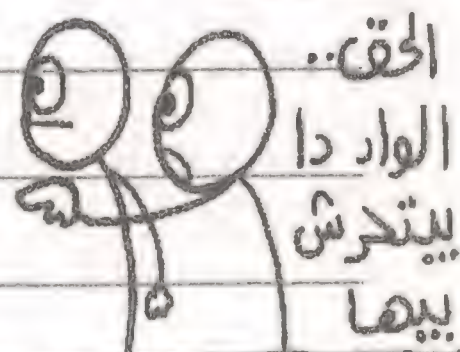 الحق..
الواد دا
بيتحرش
بيها